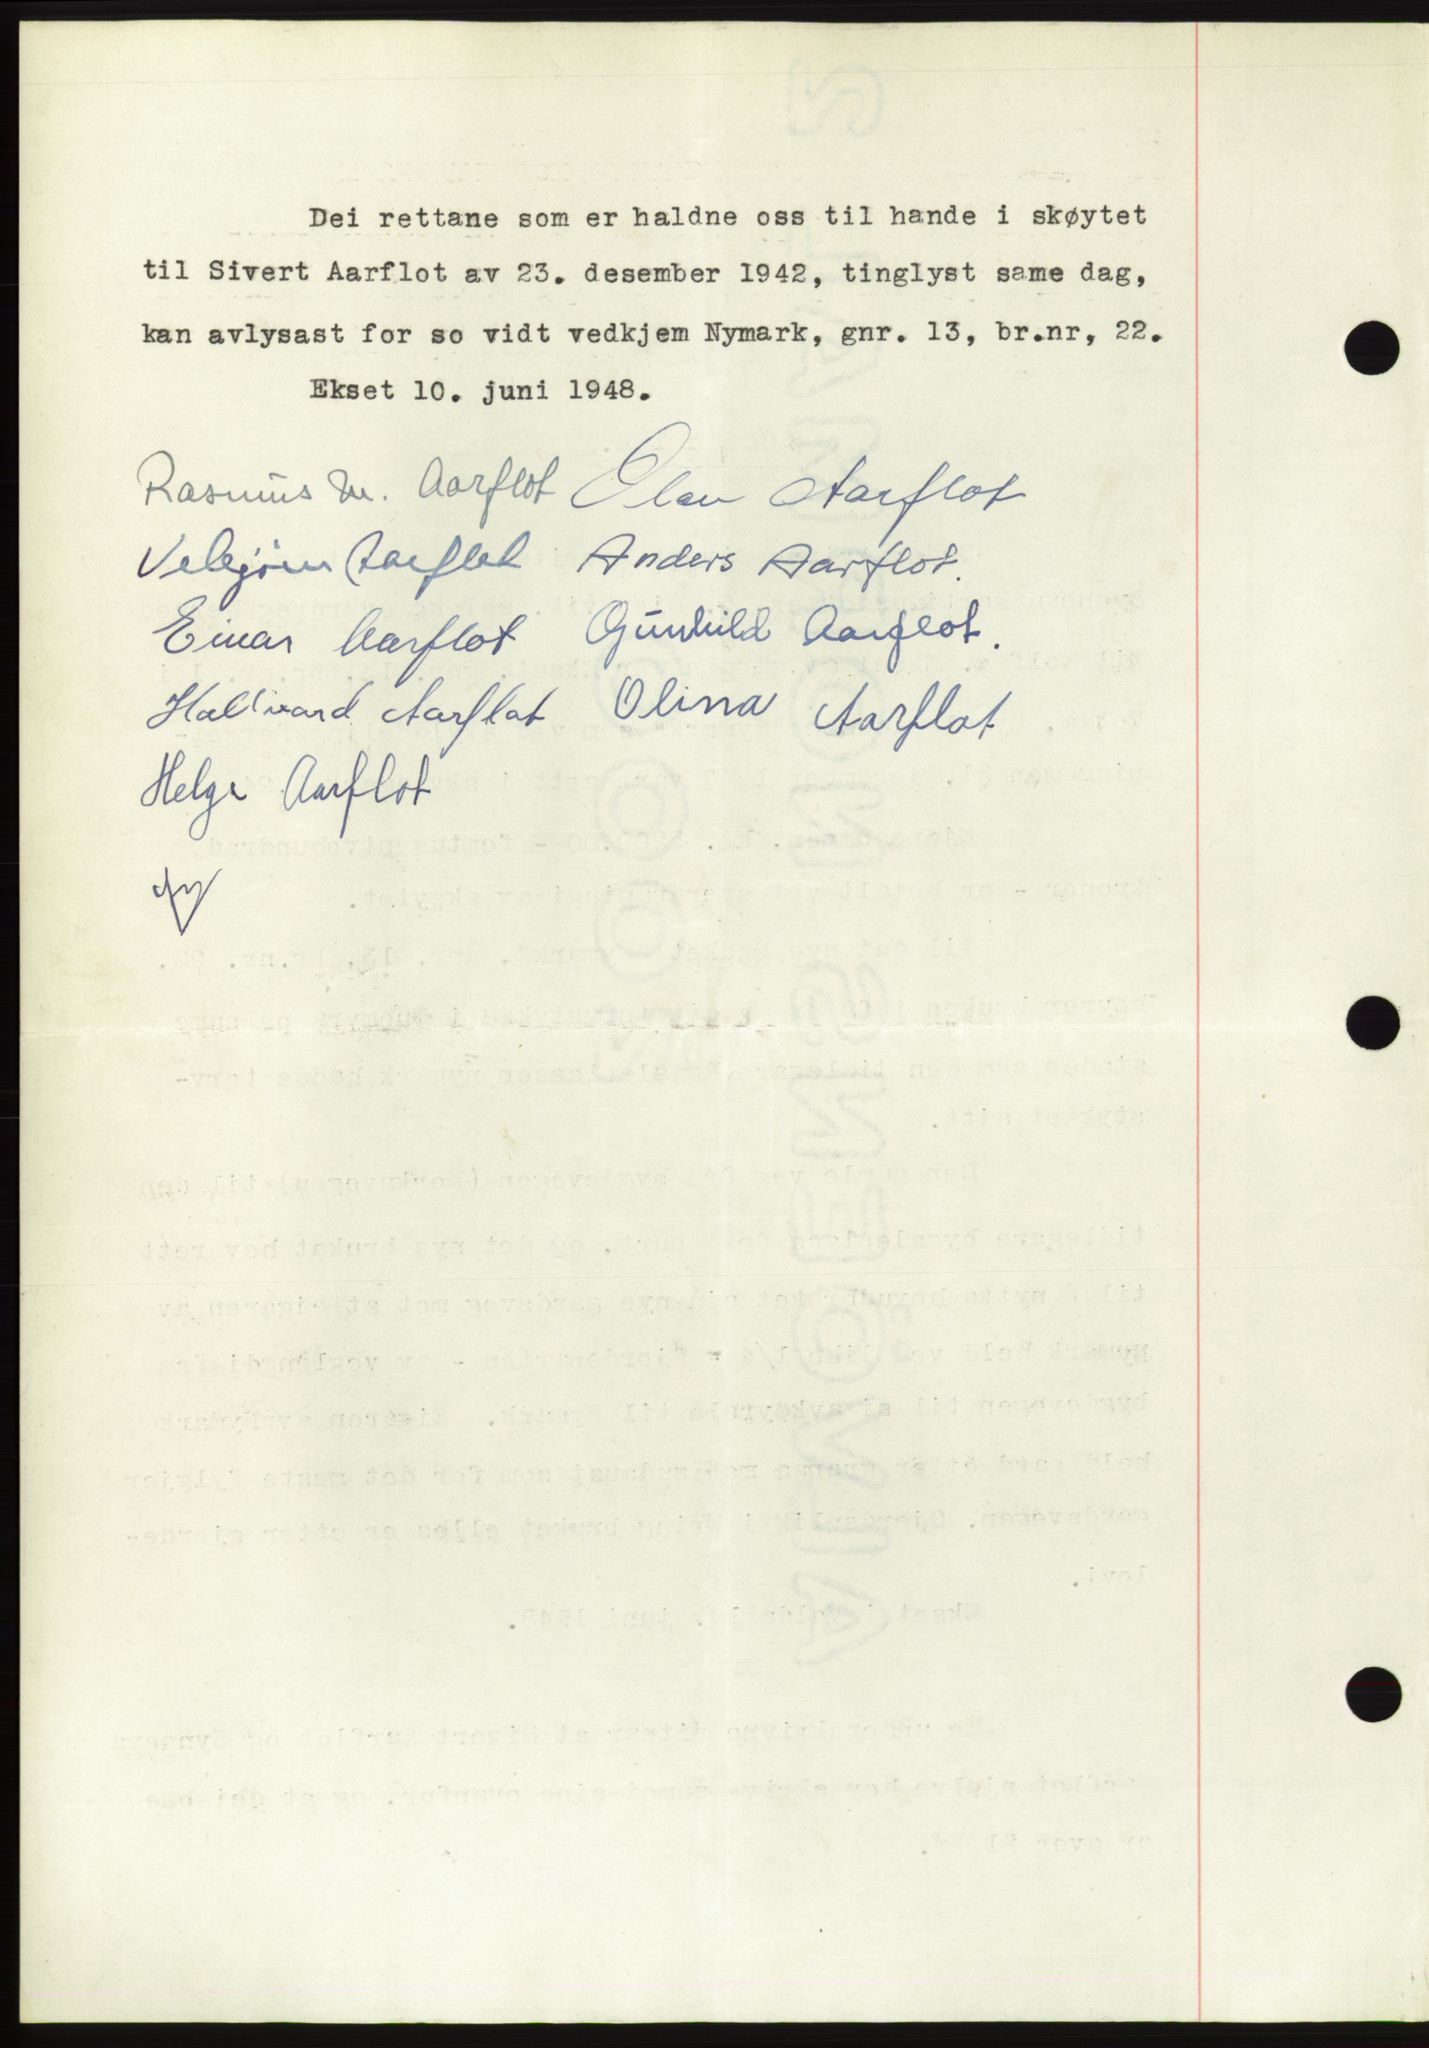 Dei rettane som er haldne oss til hande i skøytet
til Sivert Aarflot av 23. desember 1942, tinglyst same dag,
kan avlysast for so vidt vedkjem Nymark, gnr. 13, br.nr, 22.
Ekset 10. juni 1948.
Rasmus M. Aarflot Olav Aarflot
Vebjørn Aarflot Anders Aarflot.
Einar Aarflot Gunhild Aarflot.
Hallvard Aarflot Olina Aarflot
Helge Aarflot